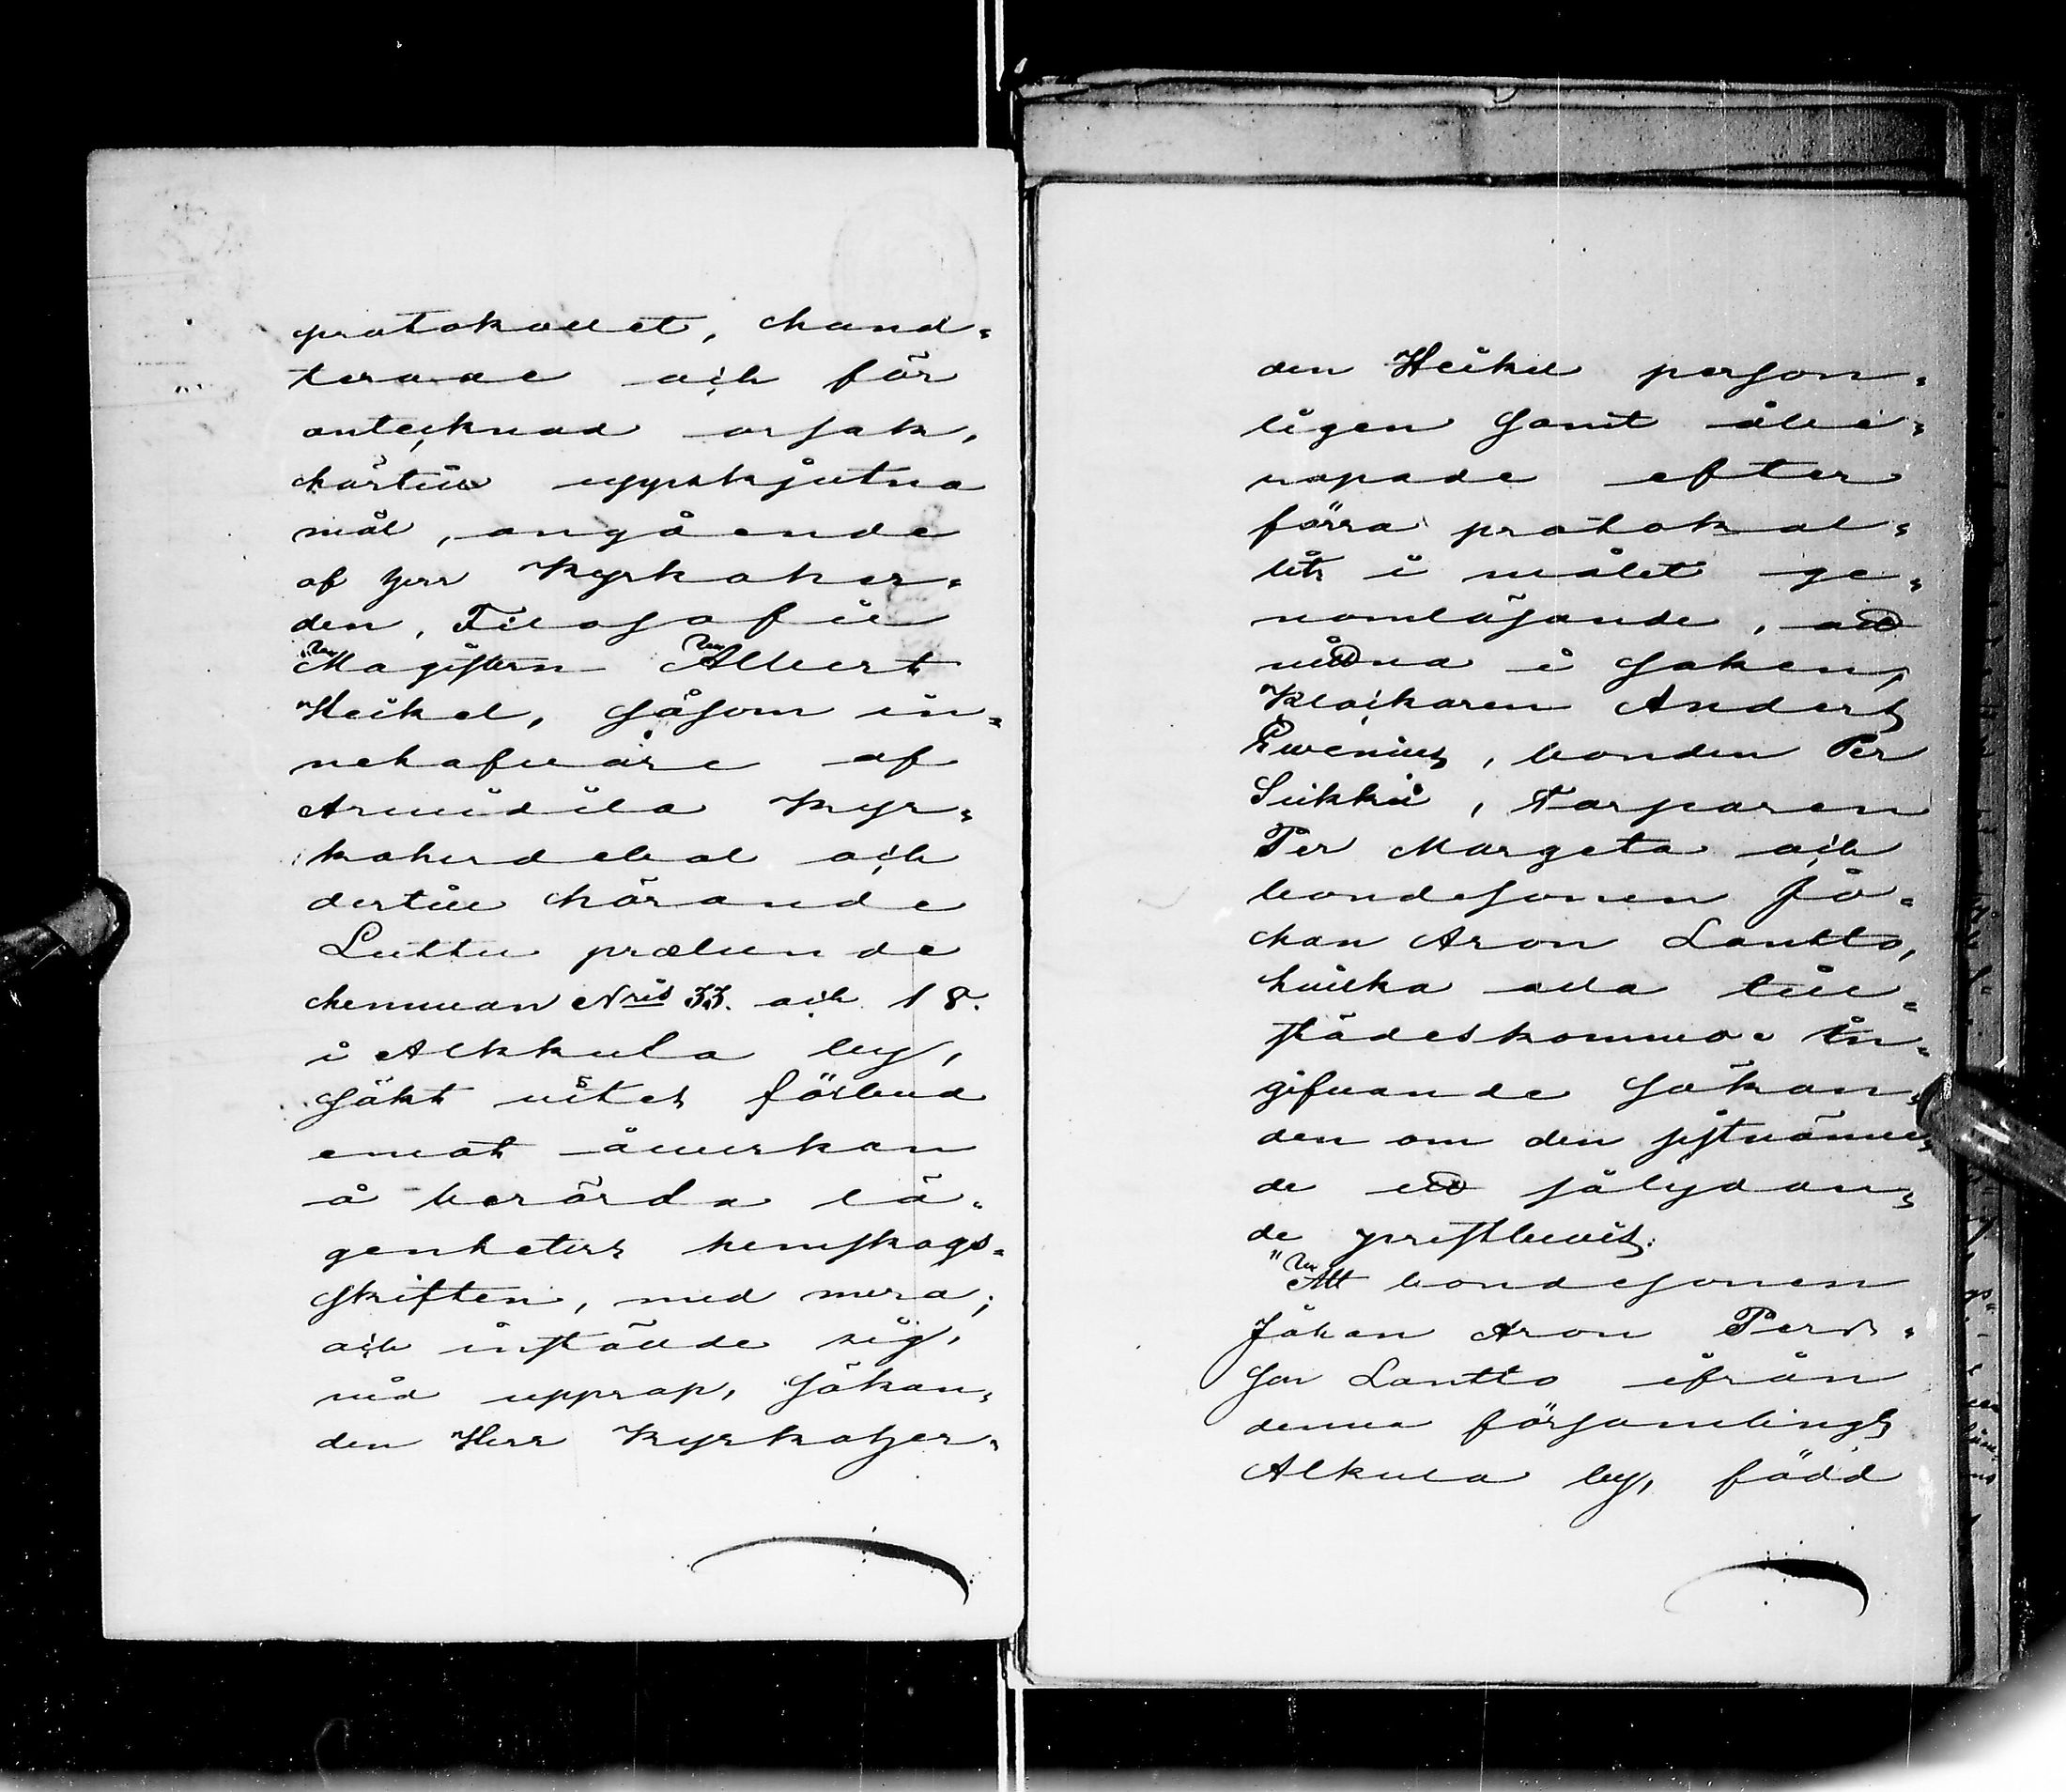 protokollet, hand-
terade och för
antecknad orsak,
härtill uppskjutna
mål, angående
af Herr Kyrkoher-
den, Filosofiæ
Magistern Albert
Heikel, såsom in-
nehafvare af
Armidila Kyr-
koherdebol och
dertill hörande
Luttu præbende
hemman N:ris 33. och 18.
i Alkkula by,
sökt vites förbud
emot åverkan
å berörda lä-
genheters hemskogs-
skiften, med mera;
och inställde sig,
vid upprop, sökan-
den Herr Kyrkoher-
den Heikel person-
ligen samt åbe-
ropade efter
förra protokol-
lets i målet ge-
nomläsande,
vittna i saken,
Klockaren Anders
bonden Per
Sukki, Torparen
Per Margeta och
bondesonen Jo-
han Aron Lantto,
hvilka alla till-
städeskommo; in-
gifvande sökan-
den om den sistnämn-
de ett sålydan-
de prestbevis:
"Att bondesonen
Johan Aron Pers-
son Lantto ifrån
denna församlings
Alkula by, född